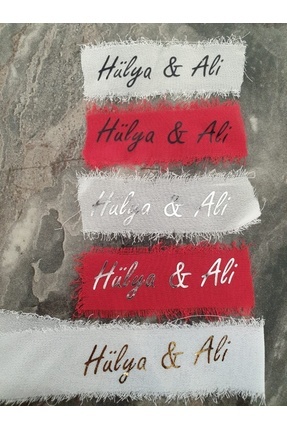 Hülya & Ali
Hülya & Ali
Hülya & Ali
Hülya & Ali
Hülya & Ali